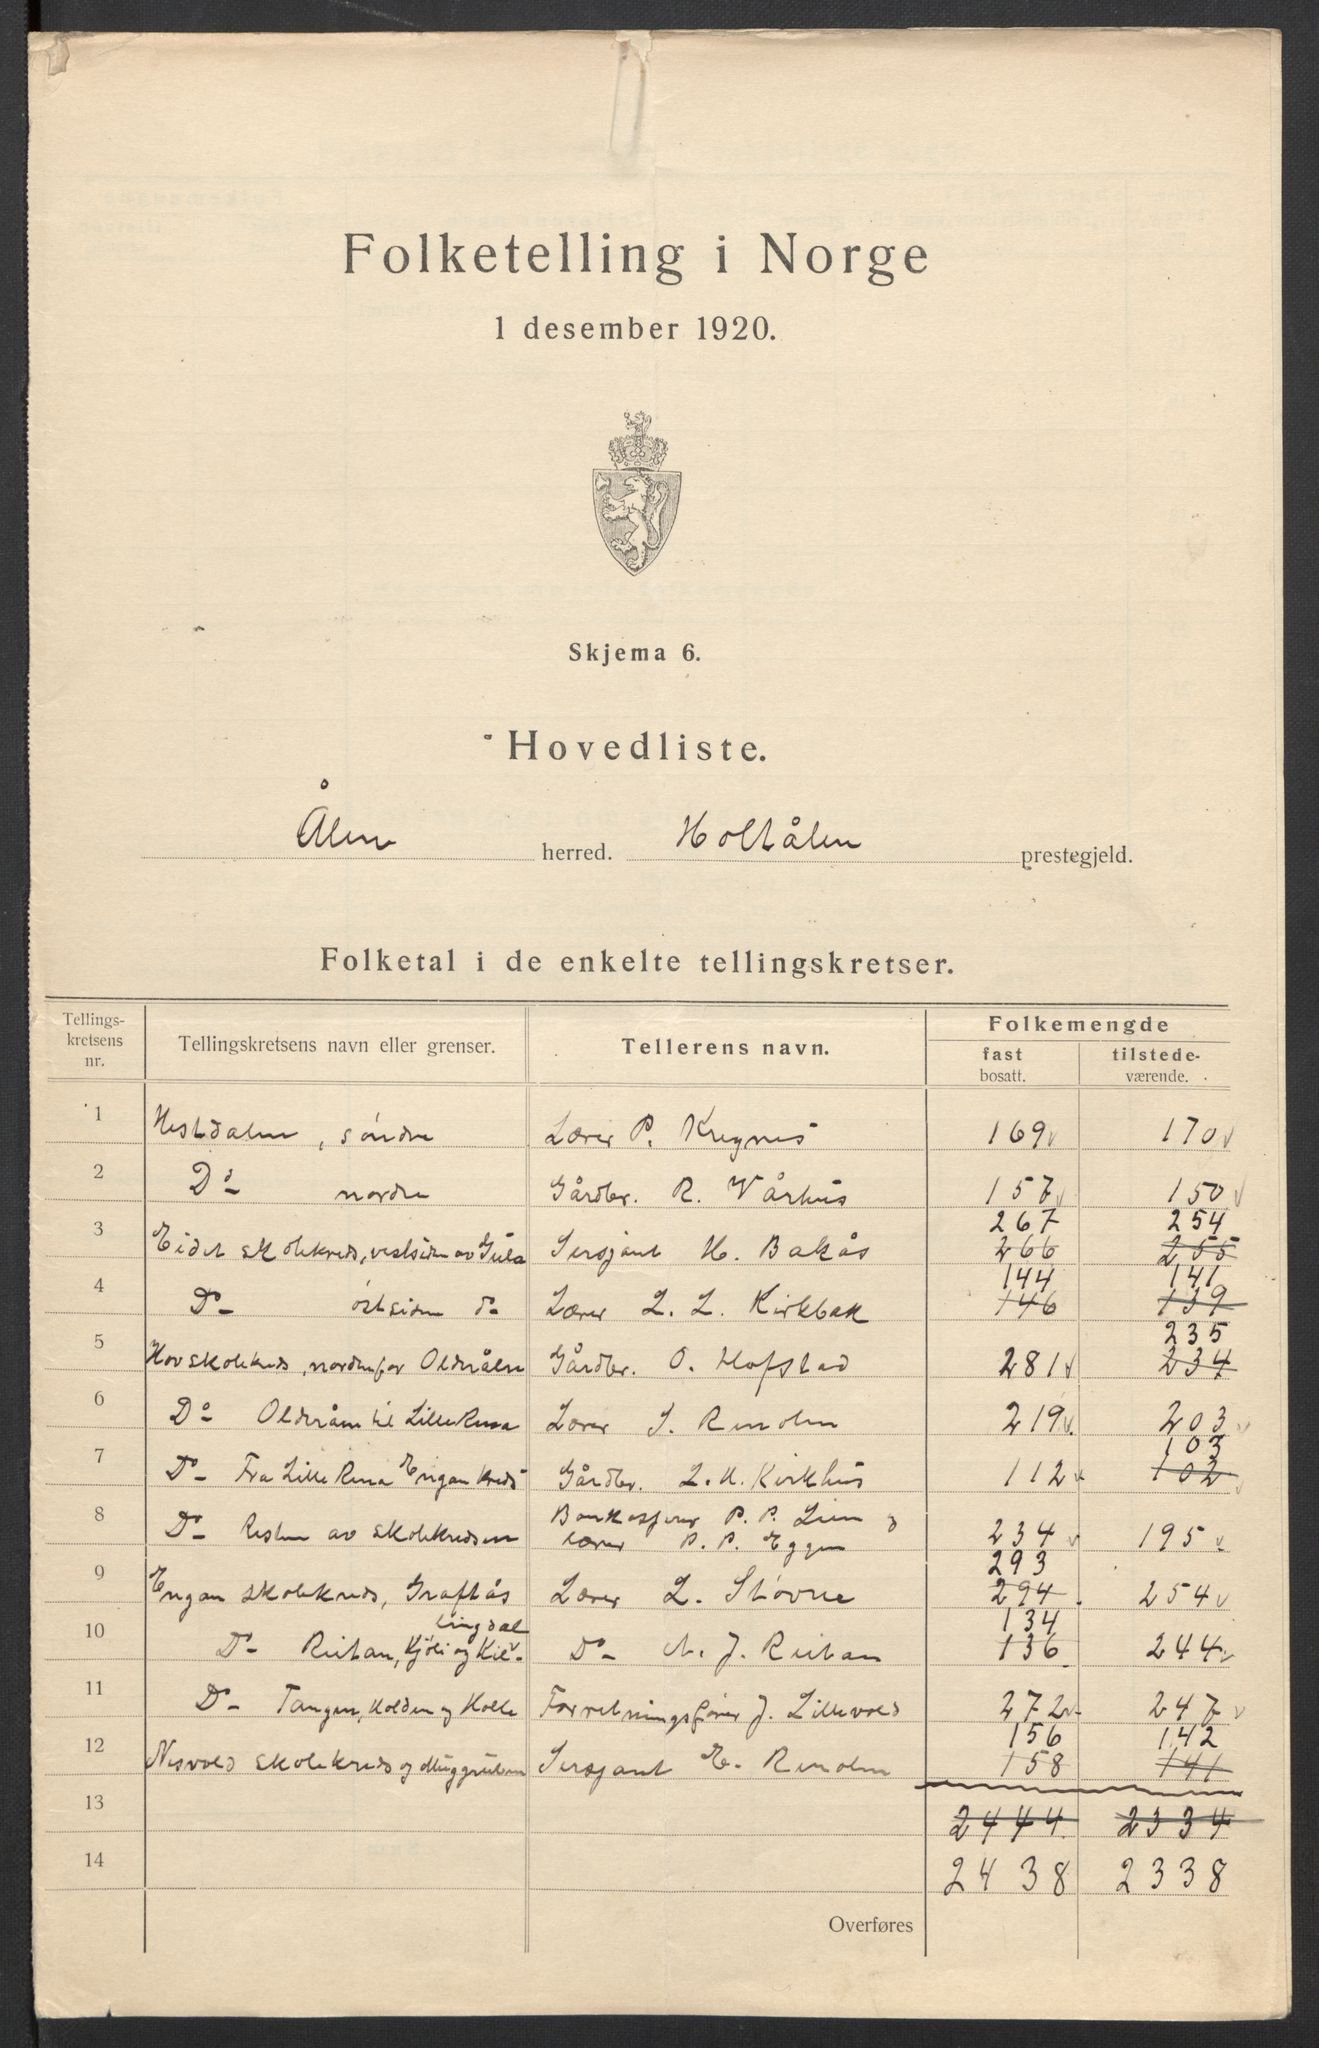 Folketelling i Norge
1 desember 1920.
Skjema 6.
Hovedliste.
Ålen herred. Holtålen prestegjeld.
Folketal i de enkelte tellingskretser.
Tellings-
kretsens
nr.
Tellingskretsens navn eller grenser.
Tellerens navn.
Folkemengde
fast
bosatt.
tilstede-
værende.
1 Hesdalen, söndre Lærer P. Krognes 169 170
2 Do nordre Gårdbr. R. Vårhus 157 150
267 254
3 Eidet skolekreds, vestsiden av Gula Sersjant H. Bakås 266 255
144 141
4 Do östsiden do Lærer L. L. Kirkbak 146 139
235
5 Hov skolekreds, nordenfor Olderåen Gårdbr. O. Hofstad 281 234
6 Do Olderåen til Lille Rena Lærer J. Renolen 219 203
103
7 Do Fra Lille Rena Engan kreds Gårdbr. L. H. Kirkhus 112 102
8 Do Resten av skolekredsen Bankasserer P. P. Lien og
lærer P. P. Eggen 234 195
293
9 Engan skolekreds, Graftås Lærer L. Stövne 294 254
lingdal 134
10 Do Reitan, Kjöli og Kil- Do A. J. Reitan 136 244
11 Do Tangen, Holden og Holte Forretningsförer J. Lillevold 272 247
156 142
12 Nesvold skolekreds og Muggruben Sersjant E. Renolen 158 141
13 2444 2334
14 2438 2338
Overføres